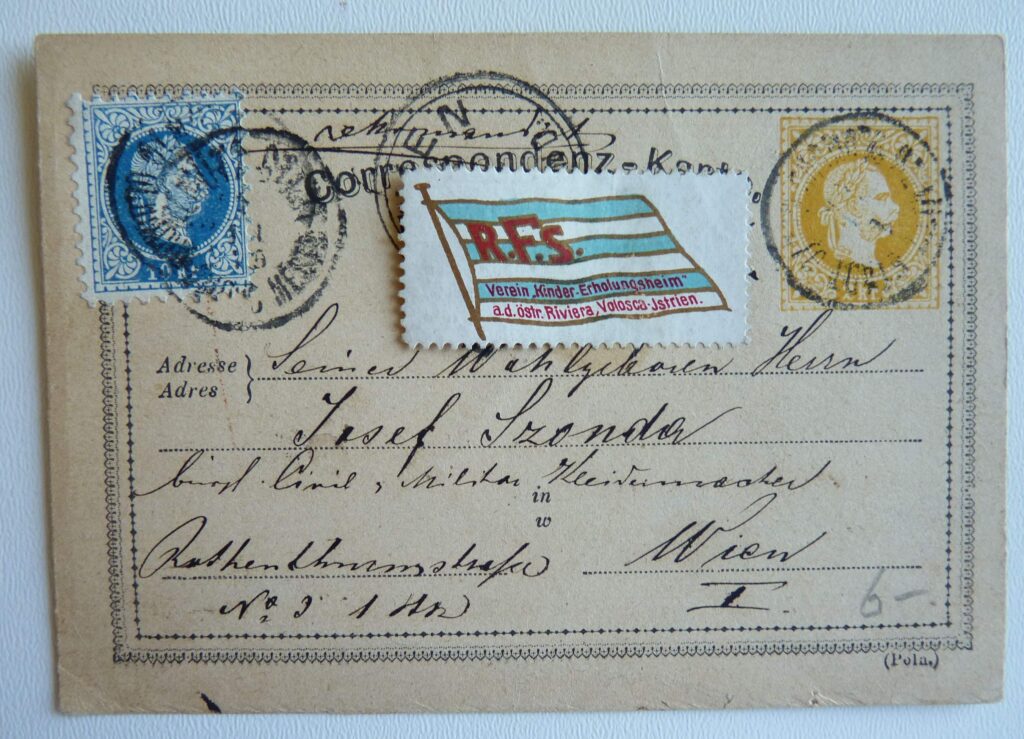 rekomandirt
Correspondenz-Kart
R.F.S.
Verein „Kinder-Erholungsheim"
a.d. östr. Riviera, Volosca-Jstrien.
Adresse
Adres
Seiner Wohlgeboren Herrn
Josef Szonda
bürgl. Civil & Militär Kleidermacher
in
w
Rothenthurmstraße Wien
No. 9 I.
6-
(Poln.)